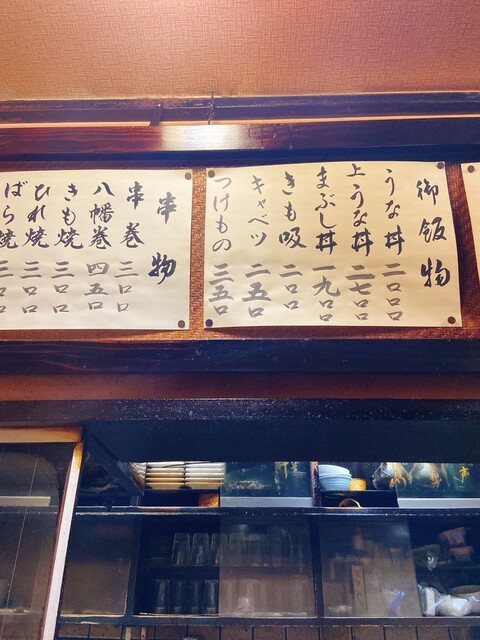 御飯物
うな丼 二〇〇〇
上うな丼 二七〇〇
まぶし丼 一九〇〇
きも吸 二〇〇
キャベツ 二五〇
つけもの 三五〇
串物
串巻 三〇〇
八幡巻 四五〇
きも焼 三〇〇
ひれ焼 三〇〇
ばら焼 三〇〇